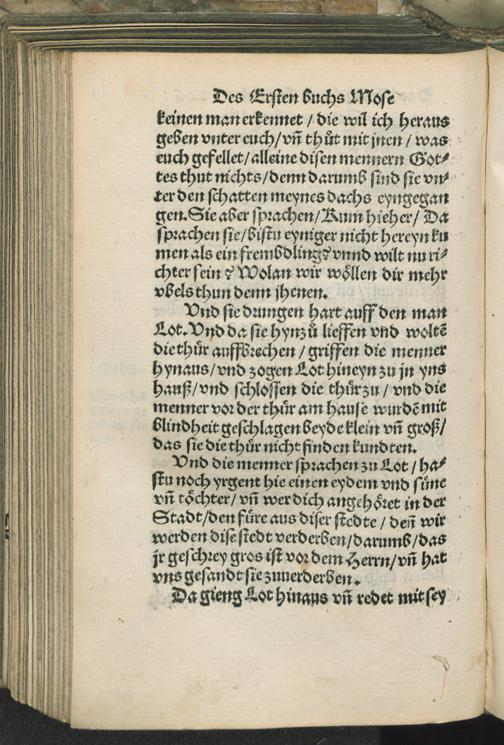 Des Ersten buchs Mose
keinen man erkennet / die wil ich heraus
geben vnter euch / vn̄ thůt mit jnen / was
euch gefellet / alleine disen mennern Got⸗
tes thut nichts / denn darumb sind sie vn⸗
ter den schatten meynes dachs eyngegan
gen. Sie aber sprachen / Kum hieher / Da
sprachen sie / bistu eyniger nicht hereyn ku
men als ein frembdling? vnnd wilt nu ri⸗
chter sein? Wolan wir wöllen dir mehr
vbels thun denn jhenen.
Vnd sie drungen hart auff den man
Lot. Vnd da sie hynzů lieffen vnd woltē
die thür auffbrechen / griffen die menner
hynaus / vnd zogen Lot hineyn zu jn yns
hauß / vnd schlossen die thür zu / vnd die
menner vor der thür am hause wurdē mit
blindheit geschlagen beyde klein vn̄ groß /
das sie die thür nicht finden kundten.
Vnd die menner sprachen zu Lot / ha⸗
stu noch yrgent hie einen eydem vnd süne
vn̄ töchter / vn̄ wer dich angehöret in der
Stadt / den füre aus diser stedte / den̄ wir
werden dise stedt verderben / darumb / das
jr geschrey gros ist vor dem Herrn / vn̄ hat
vns gesandt sie zuuerderben.
Da gieng Lot hinaus vn̄ redet mit sey